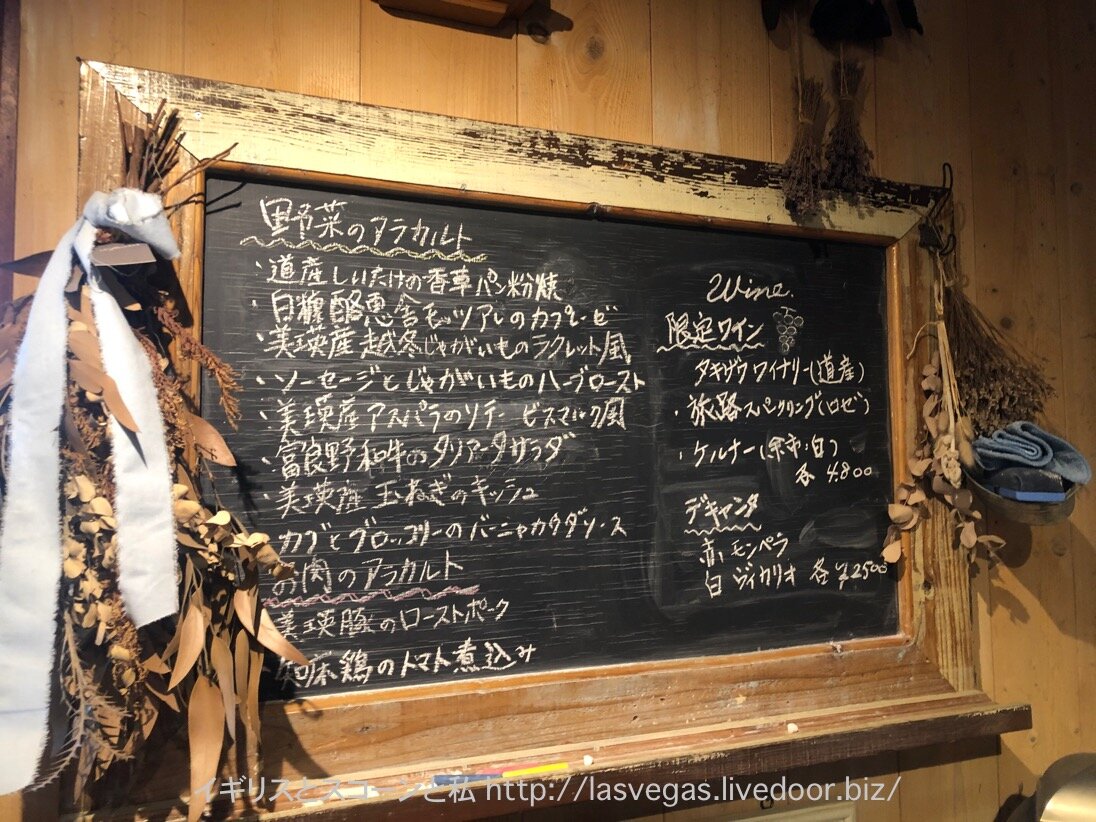 野菜のアラカルト
・道産しいたけの香草パン粉焼
・白糠酪恵舎モッツアレのカプレーゼ
・美瑛産越冬じゃがいものラクレット風
・ソーセージとじゃがいものハーブロースト
・美瑛産アスパラのソテー ビスマルク風
・富良野和牛のタリアータサラダ
・美瑛産玉ねぎのキッシュ
カブとブロッコリーのバーニャカウダソース
お肉のアラカルト
美瑛豚のローストポーク
知床鶏のトマト煮込み
Wine.
限定ワイン
タキザワワイナリー(道産)
・旅路スパークリング(ロゼ)
・ケルナー(余市・白)
各 4.800
デキャンタ
赤 モンペラ
白 ヴィカリオ 各 ¥2500
イギリスとスコーンと私 http://lasvegas.livedoor.biz/